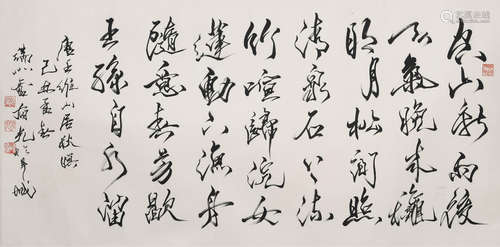 空山新雨後
天氣晚來龝
明月松間照
清泉石上流
竹喧歸浣女
蓮動下漁舟
隨意春芳歇
王孫自可留
唐王維山居秋暝
己丑夏